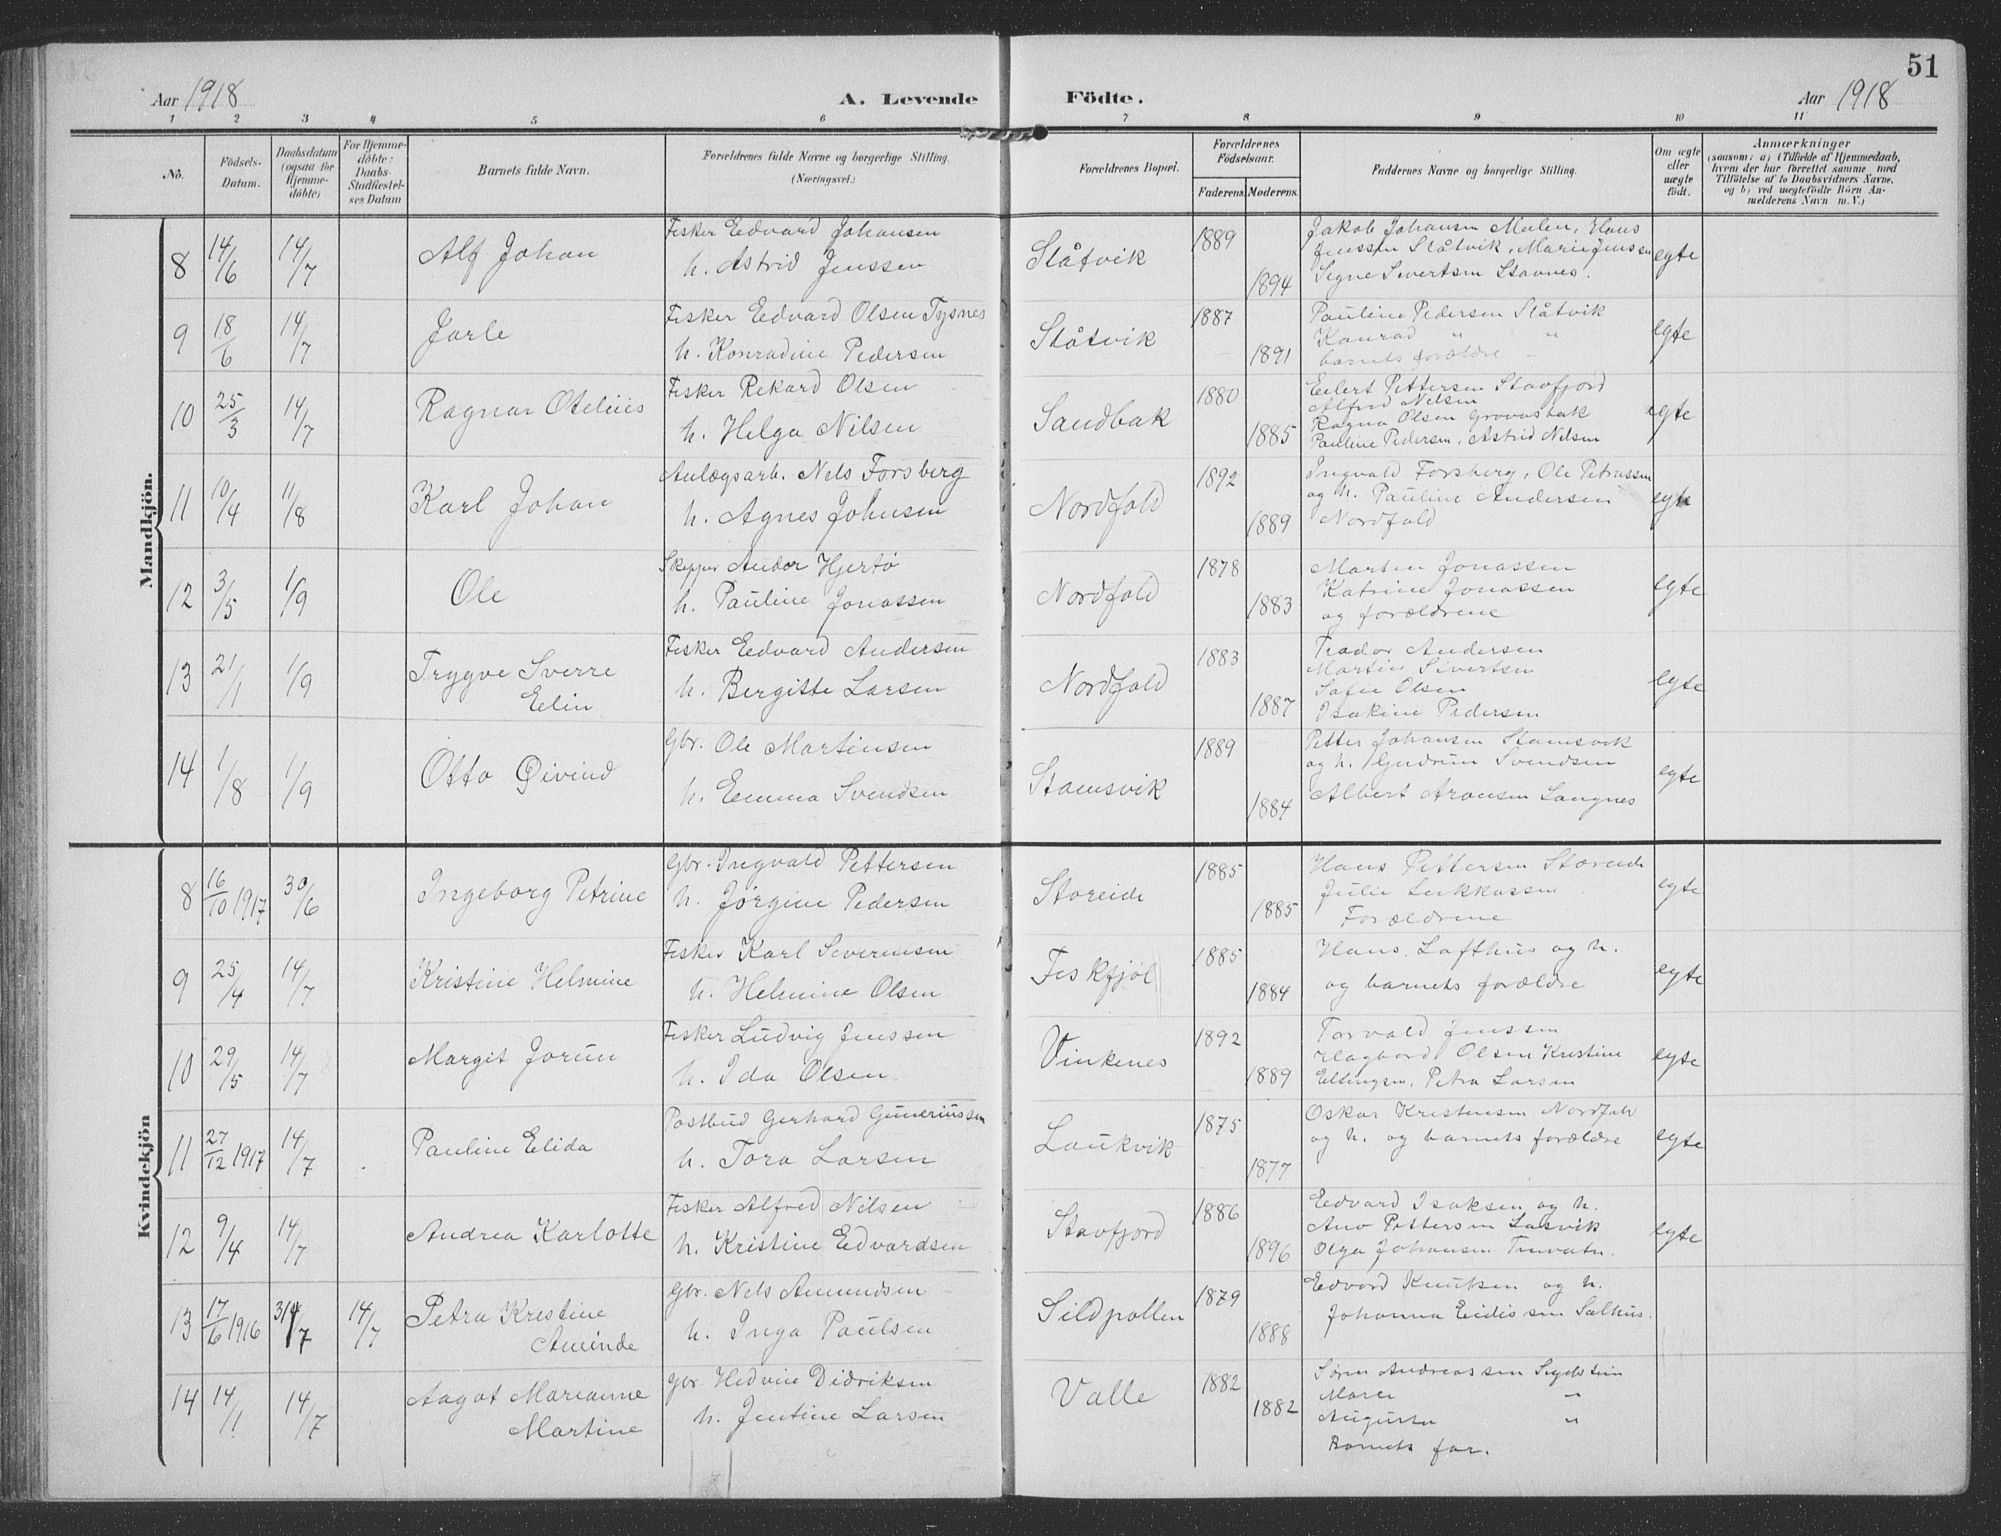 51
Aar 1918
A. Levende
Födte.
Aar 1918
1 2 3 4 5 6 7 8 9 10 11
No.
Födsels-
Datum.
Daabsdatum
(ogsaa for
Hjemme-
döbte)
For Hjemme-
döbte:
Daabs-
Stadfæstel-
ses Datum
Barnets fulde Navn.
Forældrenes fulde Navne og borgerlige Stilling
(Næringsvei.)
Forældrenes Bopæl.
Forældrenes
Födselsaar.
Faderens. Moderens.
Faddernes Navne og borgerlige Stilling.
Om ægte
eller
uægte
födt.
Anmærkninger
(saasom: a) i Tilfælde af Hjemmedaab,
hvem der har forrettet samme med
Tilföielse af to Daabsvidners Navne,
og b) ved uægtefödte Börn An-
melderens Navn m. V.)
Mandkjön.
8 14/6 14/7 Alf Johan
Fisker Edvard Johansen
h. Astrid Jenssen
Slåtvik 1889 1894
Jakob Johansen Malen, Hans
Jenssen Slåtvik, Marie Jenssen
Signe Sivertsen Stavnes.
egte
9 18/6 14/7 Jarle
Fisker Edvard Olsen Tysnes
h. Konradine Pedersen
Slåtvik 1887 1891
Pauline Pedersen Slåtvik
Konrad " "
barnets forældre
egte
10 25/3 14/7 Ragnar Otelius
Fisker Rekard Olsen
h. Helga Nilsen
Sandbak 1880 1885
Eilert Pettersen Stavfjord
Alfred Nelsen
Ragna Olsen Grovasbak
Pauline Pedersen, Astrid Nelsen
egte
11 10/4 11/8 Karl Johan
Anlægsarb. Nels Forsberg
h. Agnes Johnsen
Nordfold 1892 1889
Ingvald Forsberg, Ole Petrussen
og h. Pauline Andersen
Nordfold
egte
12 3/5 1/9 Ole
Skipper Andor Hjertø
h. Pauline Jonassen
Nordfold 1878 1883
Marten Jonassen
Katrine Jonassen
og forældrene
egte
13 21/1 1/9 Trygve Sverre
Elin
Fisker Edvard Andersen
h. Bergitte Larsen
Nordfold 1883 1887
Teador Andersen
Martin Sivertsen
Sofie Olsen
Isakine Pedersen
egte
14 1/8 1/9 Otto Øivind
Gbr. Ole Martinsen
h. Emma Svendsen
Stamsvik 1889 1884
Petter Johansen Stamsvik
og h. Gudrun Svendsen
Albert Aronsen Langnes
egte
Kvindekjön
8 16/10 1917 30/6 Ingeborg Petrine
Gbr. Ingvald Pettersen
h. Jørgine Pedersen
Storeide 1885 1885
Hans Pettersen Storeide
Julie Lukkassen
Forældrene
egte
9 25/4 14/7 Kristine Helmine
Fisker Karl Severinsen
h. Helmine Olsen
Fiskfjøl 1885 1884
Hans Lofthus og h.
og barnets forældre
egte
10 29/5 14/7 Margit Jorun
Fisker Ludvig Jenssen
h. Ida Olsen
Vinkenes 1892 1889
Torvald Jenssen
Hagbord Olsen Kristine
Ellingsen, Petra Larsen
egte
11 27/12 1917 14/7 Pauline Elida
Postbud Gerhard Guneriussen
h. Tora Larsen
Laukvik 1875 1877
Oskar Kristensen Nordfold
og h. og barnets forældre
egte
12 9/4 14/7 Andrea Karlotte
Fisker Alfred Nilsen
h. Kristine Edvardsen
Stavfjord 1886 1896
Edvard Isaksen og h.
Pettersen
Olga Johansen
egte
13 17/6 1916 14/7 Petra Krestine
Aminde
Gbr. Nels Amundsen
h. Inga Paulsen
Sildpollen 1879 1888
Edvard Knutsen og h.
Johanna Eidissen Salhus.
14 14/1 14/7 Aagot Marianne
Martine
Gbr. Hedvin Didriksen
h. Jentine Larsen
Valle 1882 1882
Søren Andreassen
"
Augusta "
Barnets far.